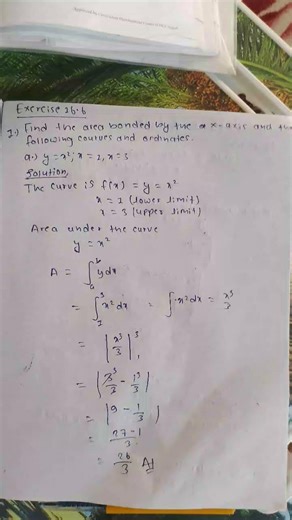 Exercise 16.6
1.) Find the area bonded by the x-axis and the
following courves and ordinates.
a.) y = x², x = 1, x = 3
Solution,
The curve is f(x) = y = x²
x = 1 (lower limit)
x = 3 (upper limit)
Area under the curve
y = x²
A = ∫ₐᵇ ydx
= ∫₁³ x² dx ∵ ∫x² dx = x³/3
= |x³/3|³₁
= |3³/3 - 1³/3|
= |9 - 1/3|
= 27-1/3
= 26/3